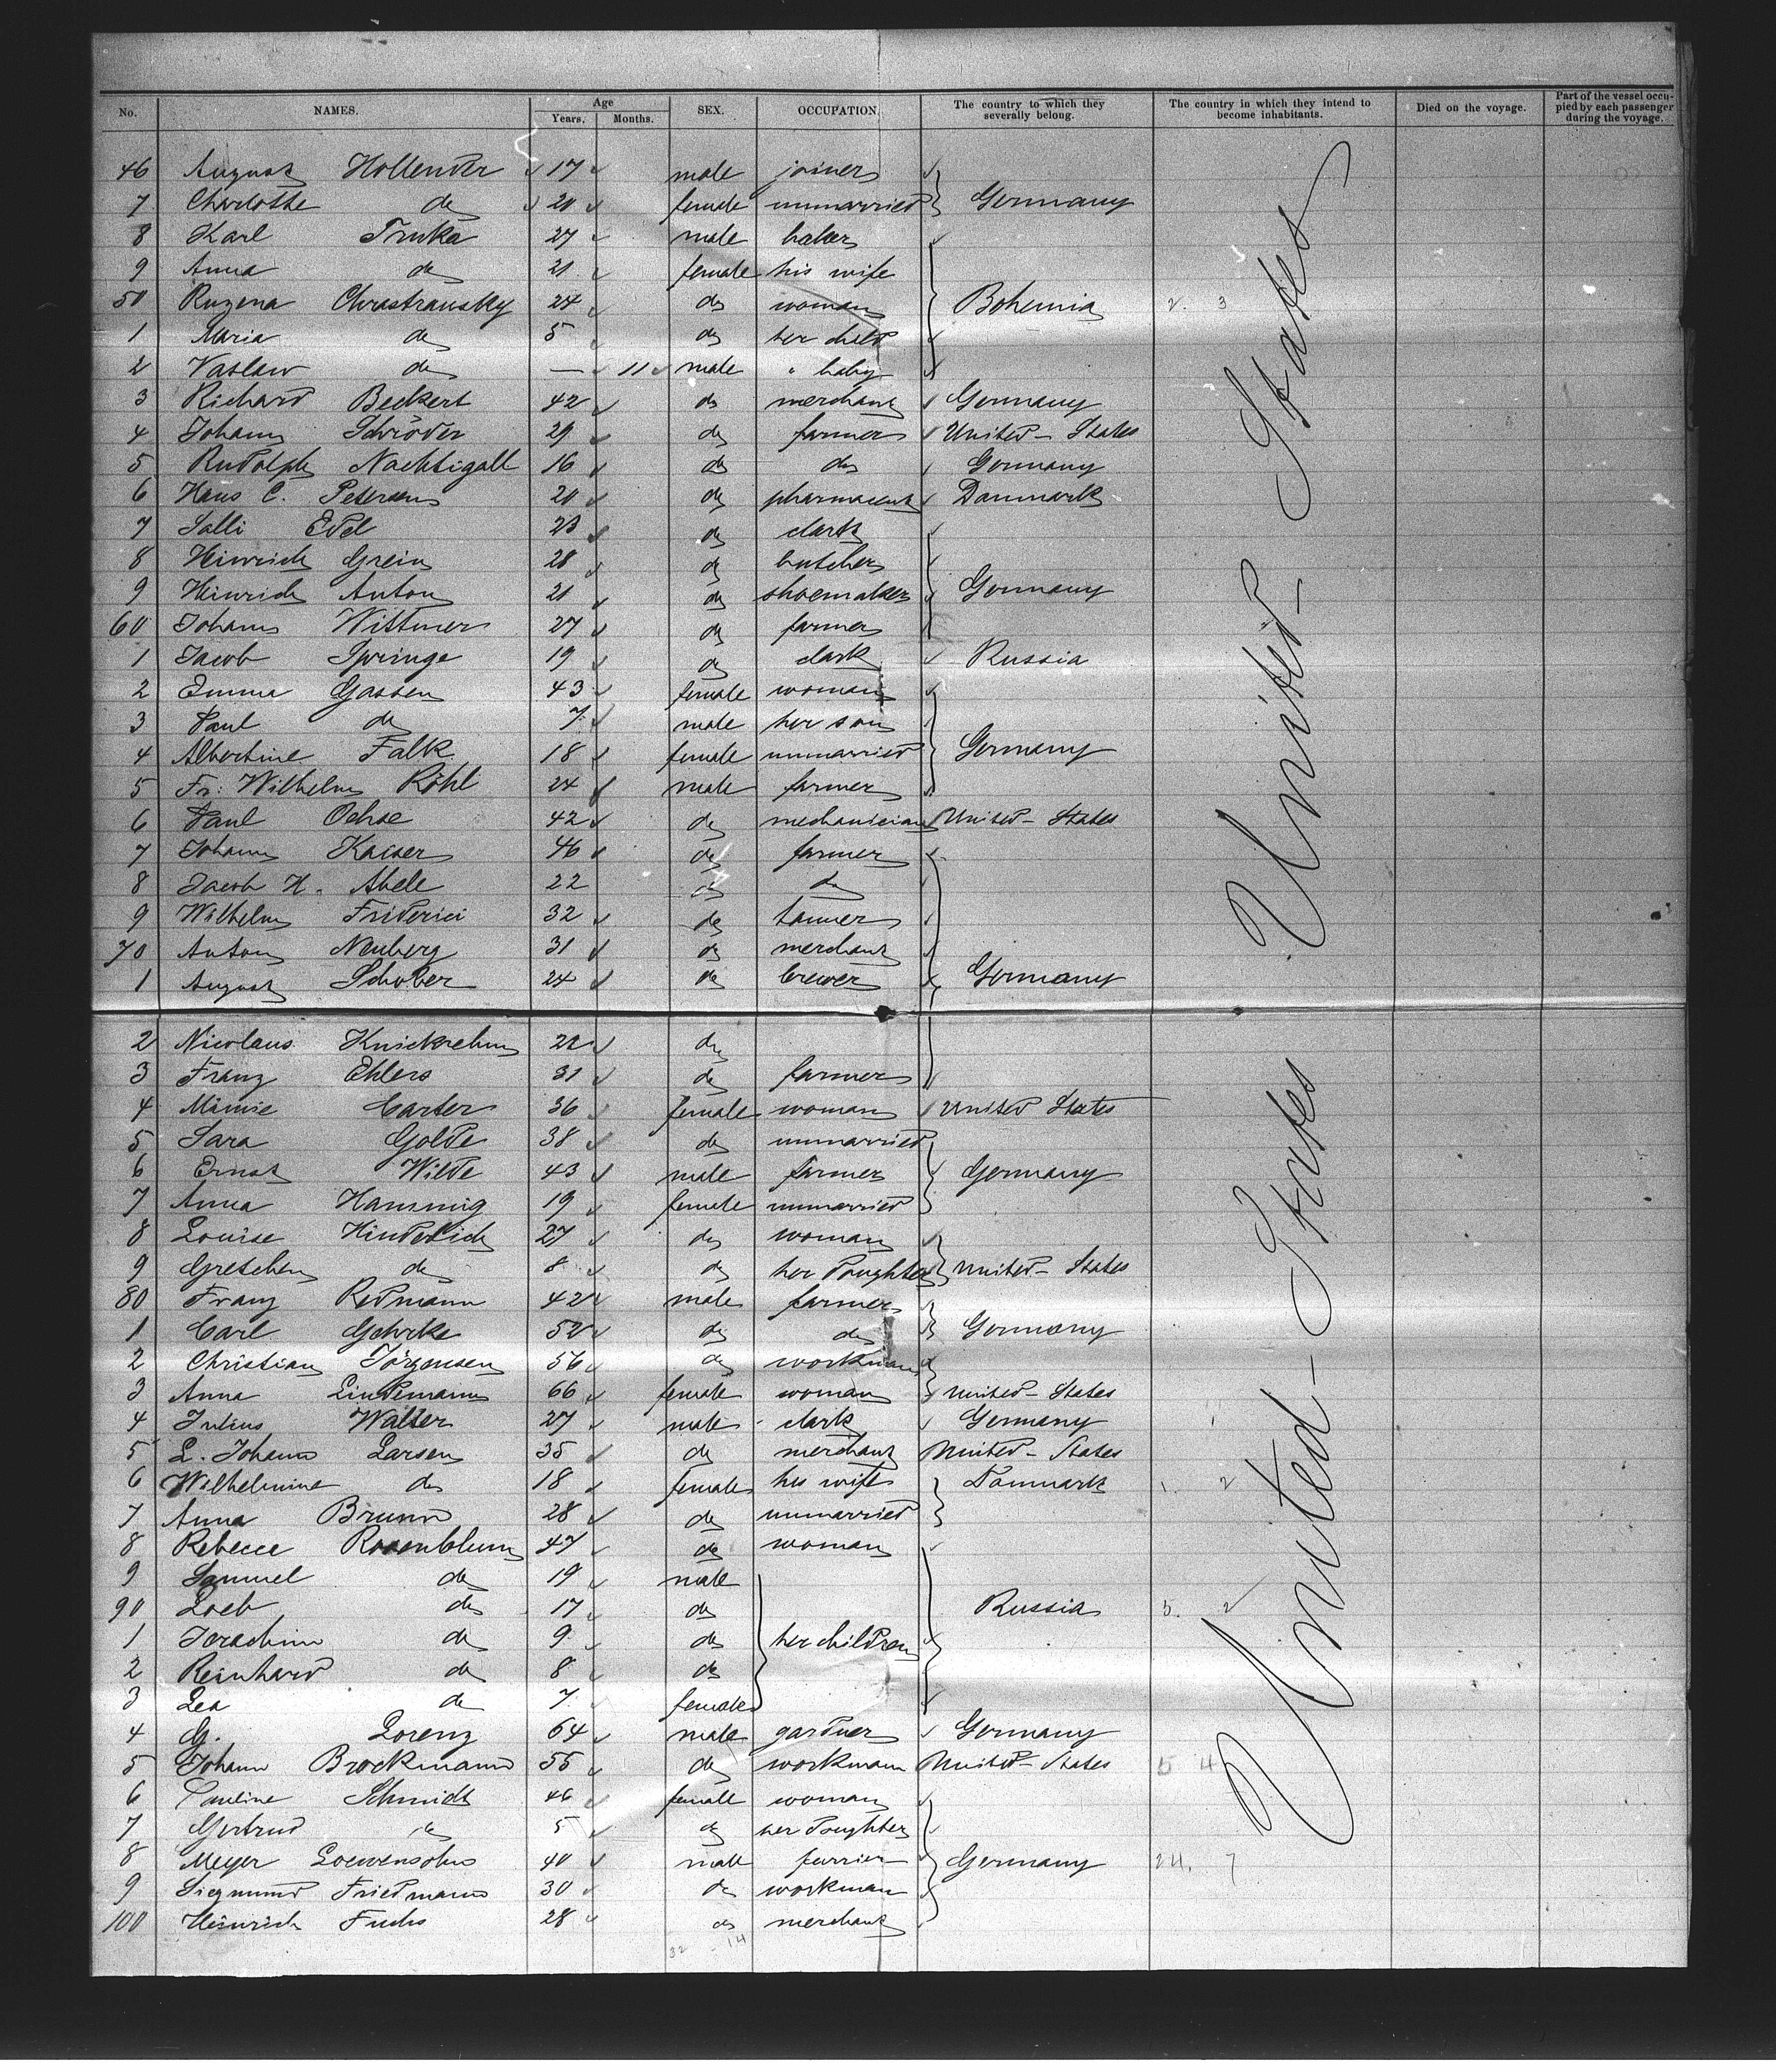 No. NAMES. Age Years. Months. SEX. OCCUPATION. The country to which they severally belong. The country in which they intend to become inhabitants. Died on the voyage. Part of the vessel occupied by each passenger during the voyage.
46 August Hollender 17 male joiner
7 Charlotte do 20 female unmarried Germany
8 Karl Truka 27 male baker
9 Anna do 21 female his wife
50 Ruzena Chrastransky 24 do woman Bohemia 2. 3
1 Maria do 5 do her child
2 Vaslaw do — 11 male " baby
3 Richard Beckert 42 do merchant Germany
4 Johann Schröder 29 do farmer United-States
5 Rudolph Nachtigall 16 do do Germany
6 Hans C. Petersen 20 do pharmaceut Danmark
7 Salli Edel 23 do clark
8 Hinrich Grein 28 do butcher
9 Hinrich Anton 21 do shoemaker Germany
60 Johann Wittmer 27 do farmer
1 Jacob Springe 19 do clark Russia
2 Emma Gassen 43 female woman
3 Paul do 7 male her son
4 Albertine Falk 18 female unmarried Germany
5 Fr. Wilhelm Röhl 24 male farmer
6 Paul Ochse 42 do mechanician United-States
7 Johann Kaiser 46 do farmer
8 Jacob H. Abele 22 do do
9 Wilhelm Friderici 32 do tanner
70 Anton Neuberg 31 do merchant
1 August Schober 24 do brewer Germany
2 Nicolaus Knickrehm 21 do
3 Franz Ehlers 31 do farmer
4 Minnie Carter 36 female woman United States
5 Sara Golde 38 do unmarried
6 Ernst Wilde 43 male farmer Germany
7 Anna Hamming 19 female unmarried
8 Louise Hinderlich 27 do woman
9 Gretchen do 8 do her doughter United-States
80 Franz Redmann 42 male farmer
1 Carl Gehrke 52 do do Germany
2 Christian Jörgensen 56 do workman
3 Anna Lindemann 66 female woman United-States
4 Julius Walter 27 male clark Germany
5 L. Johann Larsen 35 do merchant United-States
6 Wilhelmine do 18 female his wife Danmark 1. 2
7 Anna Brunn 28 do unmarried
8 Rebecca Rosenblum 47 do woman
9 Samuel do 19 male
90 Loeb do 17 do Russia 5. 2
1 Jerachim do 9 do her children
2 Reinhard do 8 do
3 Lea do 7 female
4 G. Lorenz 64 male gardner Germany
5 Johann Brockmann 55 do workman United-States 5 4
6 Pauline Schmidt 46 female woman
7 Gertrud do 5 do her doughter
8 Meyer Loewensohn 40 male furrier Germany 24. 7
9 Siegmund Friedmann 30 do workman
100 Heinrich Fuchs 28 do merchant
32 - 14
United-States
United-States